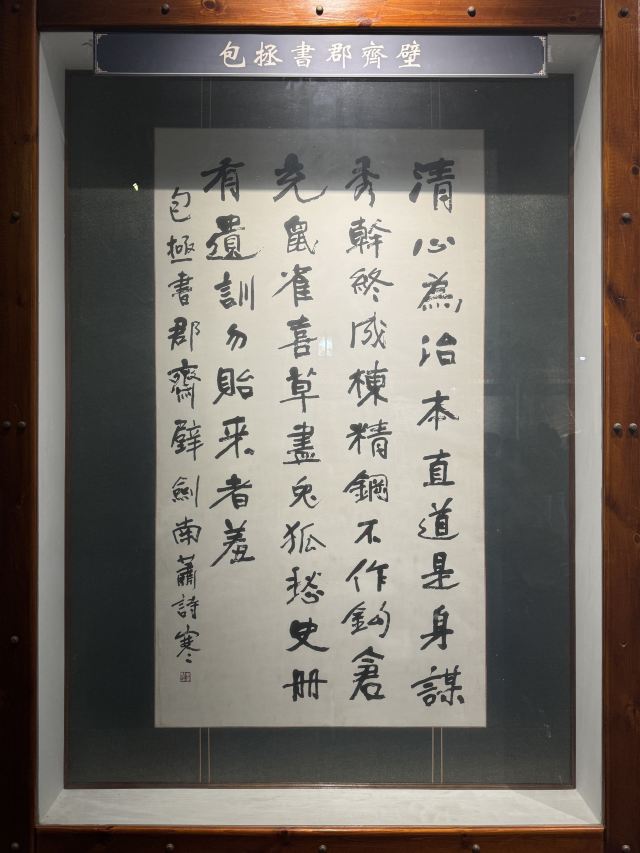 包拯書郡齊壁
清心為治本直道是身謀
秀幹終成棟精鋼不作鈎倉
充鼠雀喜草盡兔狐愁史冊
有遺訓勿貽来者羞
包拯書郡齋壁劍南蕭詩寒